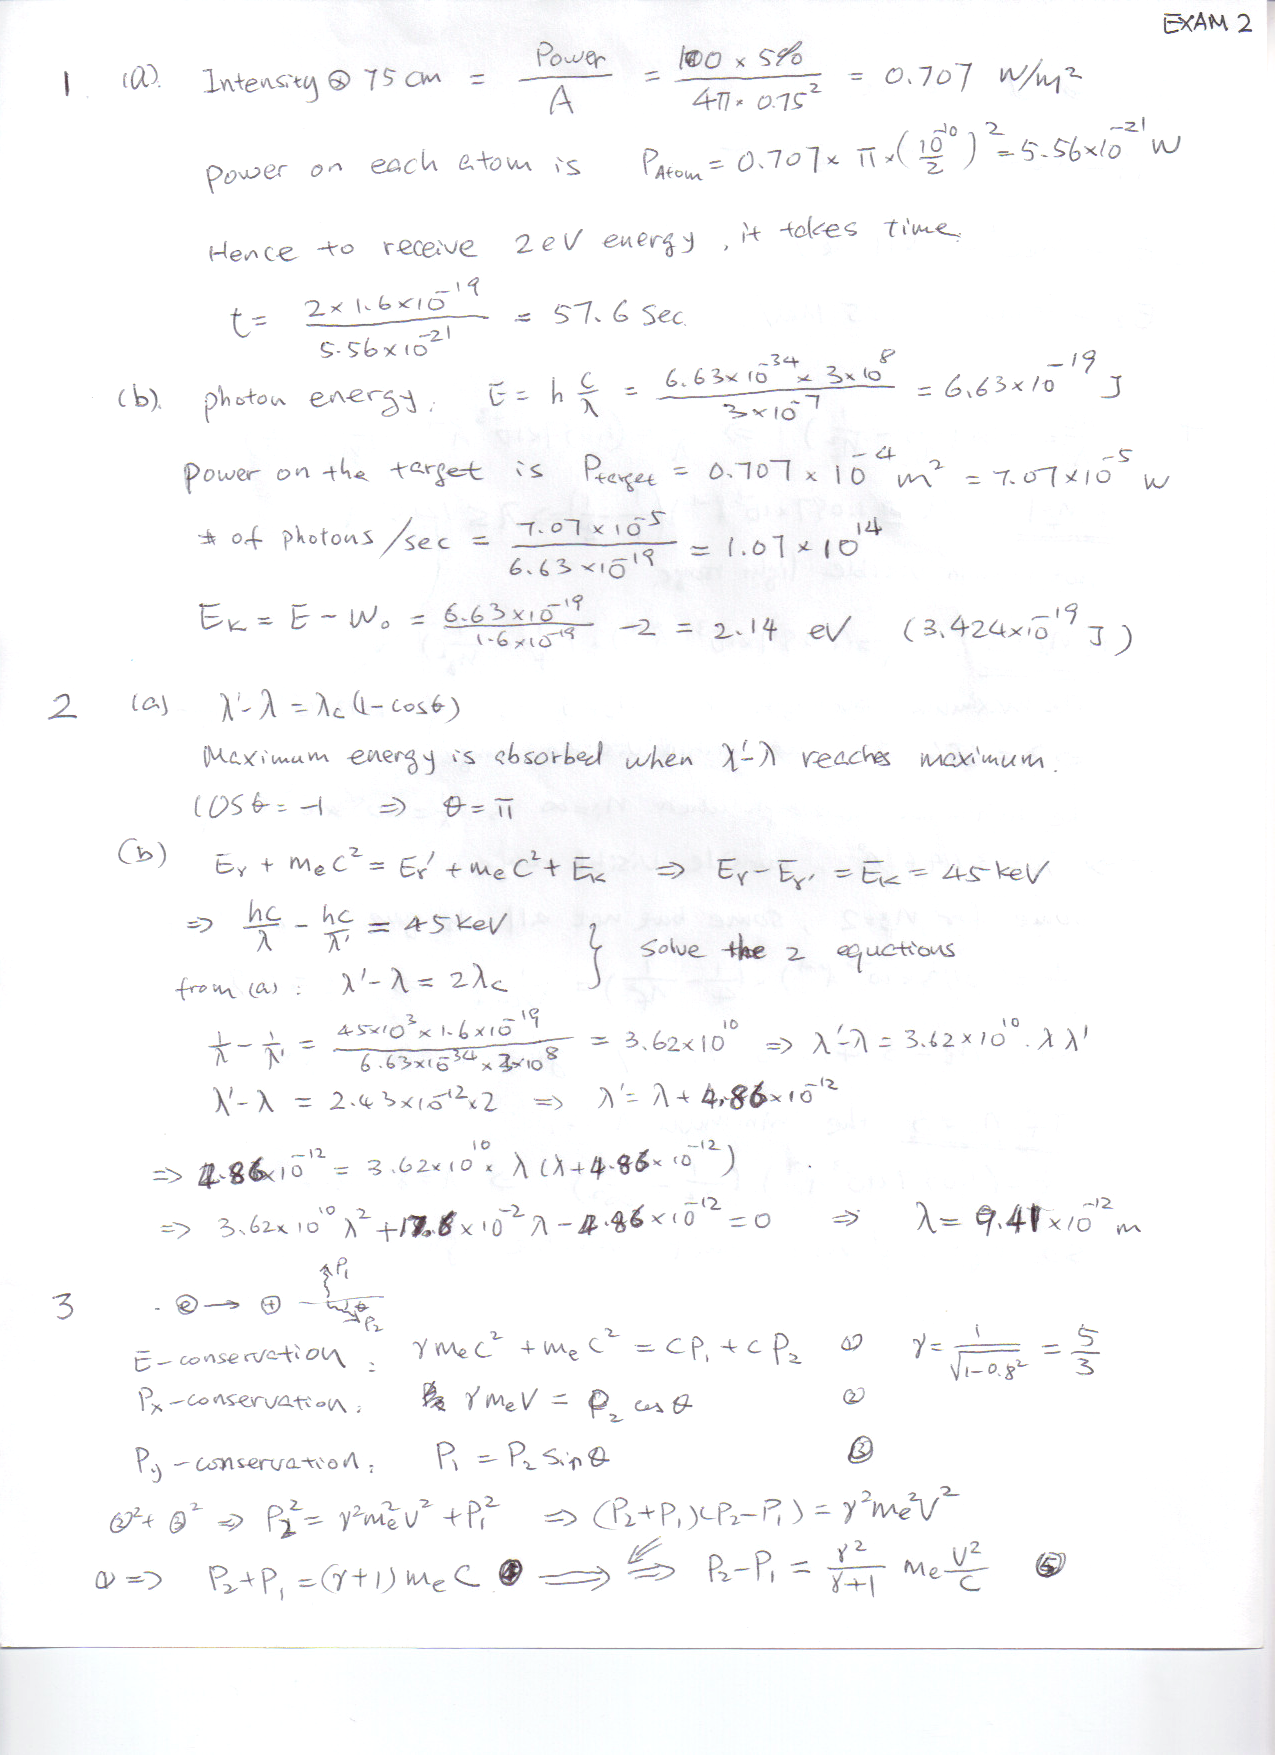 EXAM 2
1 (a). Intensity @ 75 cm = Power / A = 100 × 5% / 4π × 0.75² = 0.707 W/m²
power on each atom is P_Atom = 0.707 × π × (10⁻¹⁰ / 2)² = 5.56×10⁻²¹ W
Hence to receive 2 eV energy, it takes time.
t = 2 × 1.6×10⁻¹⁹ / 5.56×10⁻²¹ = 57.6 Sec.
(b). photon energy: E = h c/λ = 6.63×10⁻³⁴ × 3×10⁸ / 3×10⁻⁷ = 6.63×10⁻¹⁹ J
Power on the target is P_target = 0.707 × 10⁻⁴ m² = 7.07×10⁻⁵ W
# of photons/sec = 7.07×10⁻⁵ / 6.63×10⁻¹⁹ = 1.07×10¹⁴
E_K = E − W₀ = 6.63×10⁻¹⁹ / 1.6×10⁻¹⁹ − 2 = 2.14 eV (3.424×10⁻¹⁹ J)
2 (a) λ' − λ = λc (1 − cosθ)
Maximum energy is absorbed when λ' − λ reaches maximum.
cosθ = −1 ⇒ θ = π
(b) Eγ + meC² = Eγ' + meC² + E_K ⇒ Eγ − Eγ' = E_K = 45 keV
⇒ hc/λ − hc/λ' = 45 keV } Solve the 2 equctions
from (a): λ' − λ = 2λc
1/λ − 1/λ' = 45×10³ × 1.6×10⁻¹⁹ / 6.63×10⁻³⁴ × 3×10⁸ = 3.62×10¹⁰ ⇒ λ' − λ = 3.62×10¹⁰ · λ λ'
λ' − λ = 2.43×10⁻¹² × 2 ⇒ λ' = λ + 4.86×10⁻¹²
⇒ 4.86×10⁻¹² = 3.62×10¹⁰ × λ (λ + 4.86×10⁻¹²)
⇒ 3.62×10¹⁰ λ² + 17.6×10⁻² λ − 4.86×10⁻¹² = 0 ⇒ λ = 9.41×10⁻¹² m
3 e → + P₁ θ P₂
E-conservation: γ meC² + meC² = CP₁ + CP₂ ① γ = 1 / √(1−0.8²) = 5/3
Px-conservation: γ meV = P₂ cosθ ②
Py-conservation: P₁ = P₂ sinθ ③
②² + ③² ⇒ P₂² = γ²me²V² + P₁² ⇒ (P₂+P₁)(P₂−P₁) = γ²me²V²
① ⇒ P₂+P₁ = (γ+1) meC ④ ⇒ ⇒ P₂−P₁ = γ²/(γ+1) me V²/C ⑤